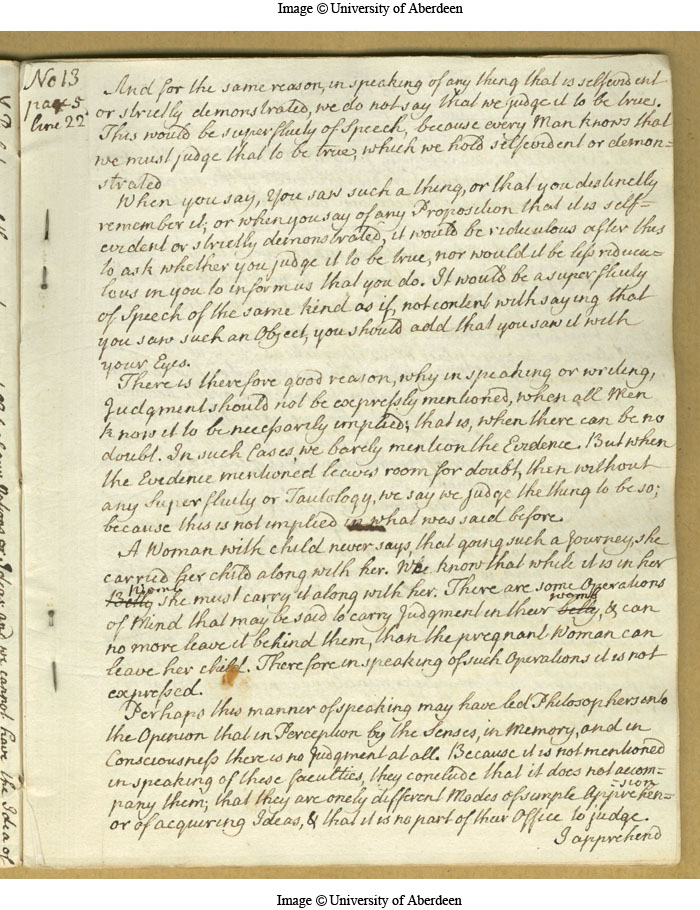 Image © University of Aberdeen
No 13
page 5
line 22
And for the same reason, in speaking of any thing that is selfevident
or strictly demonstrated, we do not say that we judge it to be true.
This would be superfluity of Speech, because every Man knows that
we must judge that to be true, which we hold selfevident or demon-
strated
When you say, You saw such a thing, or that you distinctly
remember it; or when you say of any Proposition that it is self=
evident or strictly demonstrated, it would be ridiculous after this
to ask whether you judge it to be true, nor would it be less ridicu-
lous in you to inform us that you do. It would be a superfluity
of Speech of the same kind as if, not content with saying that
you saw such an Object, you should add that you saw it with
your Eyes.
There is therefore good reason, why in speaking or writing,
Judgment should not be expressly mentioned, when all Men
know it to be necessarily implied; that is, when there can be no
doubt. In such Cases, we barely mention the Evidence. But when
the Evidence mentioned leaves room for doubt, then without
any Superfluity or Tautology, we say we judge the thing to be so;
because this is not implied in what was said before.
A Woman with child never says, that going such a Journey, she
carried her child along with her. We know that while it is in her
womb
Belly she must carry it along with her. There are some Operations
womb
of Mind that may be said to carry Judgment in their belly, & can
no more leave it behind them, than the pregnant Woman can
leave her child. Therefore in speaking of such Operations it is not
expressed.
Perhaps this manner of speaking may have led Philosophers into
the Opinion that in Perception by the Senses, in Memory, and in
Consciousness there is no Judgment at all. Because it is not mentioned
in speaking of these faculties, they conclude that it does not accom-
pany them; that they are onely different Modes of simple Apprehen-
sion
or of acquiring Ideas, & that it is no part of their Office to judge.
I apprehend
Ideas and we cannot have the Idea of
Image © University of Aberdeen